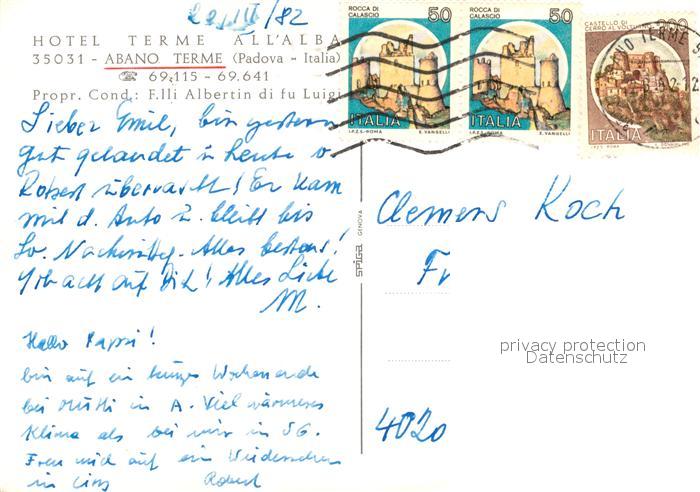 22/III/82
HOTEL TERME ALL'ALBA
35031 - ABANO TERME (Padova - Italia)
☎ 69.115 - 69.641
Propr. Cond.: F.lli Albertin di fu Luigi
Lieber Emil, bin gestern
gut gelandet u heute v
Robert überrascht! Er kam
mit d. Auto u. bleibt bis
So. Nachmittg. Alles bestens!
Gib acht auf Dich! Alles Liebe
M.
Hallo Pappi!
bin auf ein kurzes Wochenende
bei Mutti in A. Viel wärmeres
Klima als bei mir in SG.
Freu mich auf ein Wiedersehen
in Linz Robert
ROCCA DI CALASCIO 50
ITALIA
I.P.Z.S.-ROMA E. VANGELLI
ROCCA DI CALASCIO 50
ITALIA
I.P.Z.S.-ROMA E. VANGELLI
CASTELLO DI CERRO AL VOLTURNO 200
ITALIA
TERME
SPIGA GENOVA
Clemens Koch
Fr
privacy protection
Datenschutz
4020